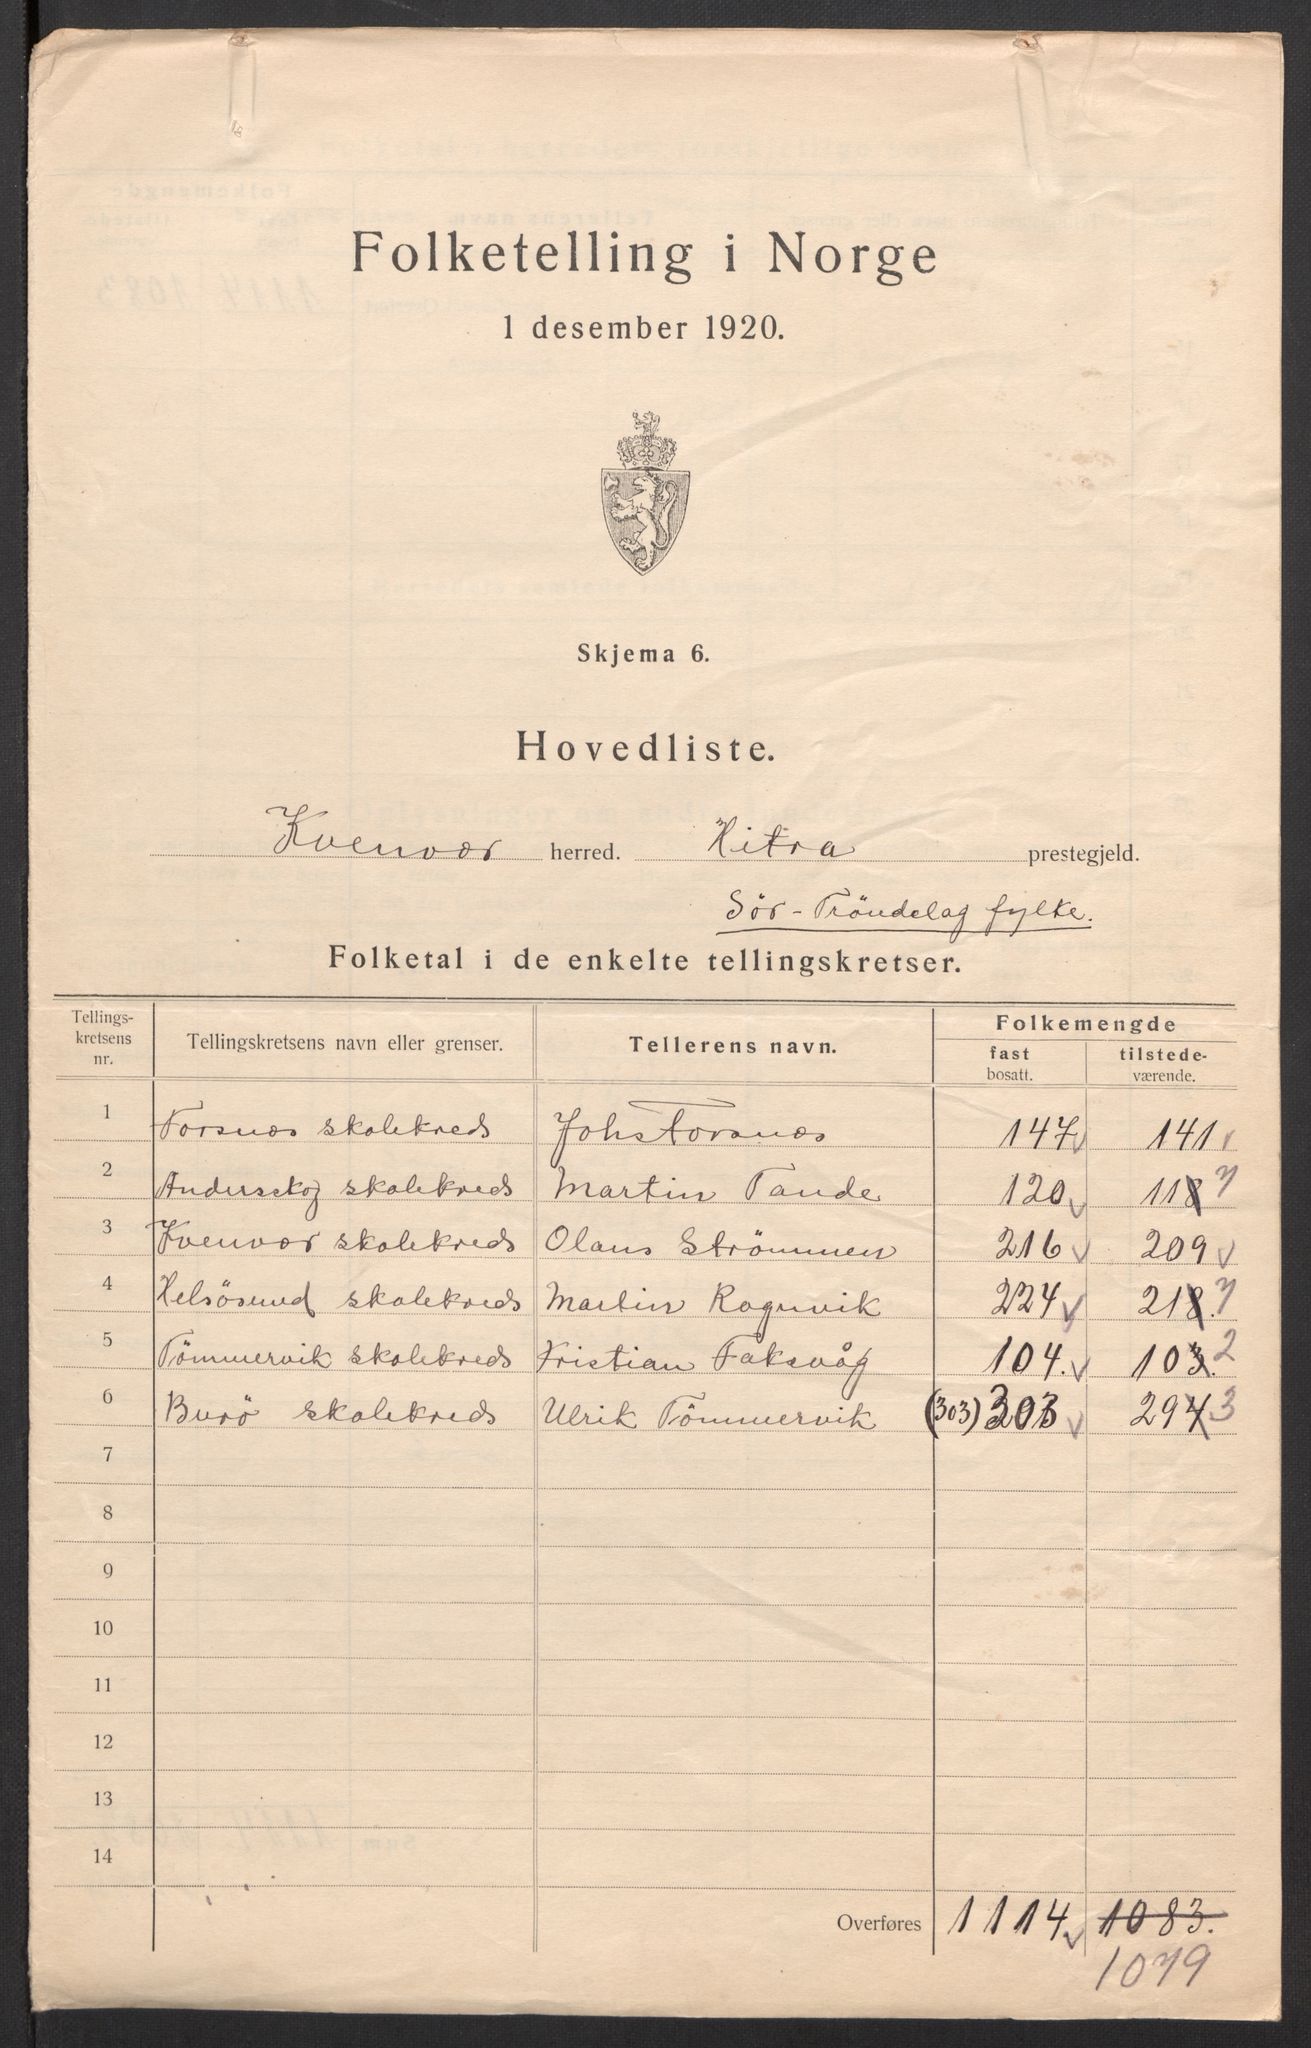 Folketelling i Norge
1 desember 1920.
Skjema 6.
Hovedliste.
Kvenvær herred. Hitra prestegjeld.
Sör-Tröndelag fylke.
Folketal i de enkelte tellingskretser.
Tellings-kretsens nr. Tellingskretsens navn eller grenser. Tellerens navn. Folkemengde
fast bosatt. tilstede-værende.
1 Forsnes skolekreds Joh Forsnes 147 141
2 Andersskog skolekreds Martin Tande 120 118 7
3 Kvenvær skolekreds Olaus Strömmen 216 209
4 Helsösund skolekreds Martin Rognvik 224 218. 7
5 Tömmervik skolekreds Kristian Faksvåg 104. 103. 2
6 Burö skolekreds Ulrik Tömmervik (303) 303 294 3
7
8
9
10
11
12
13
14
Overføres 1114 1083.
1079